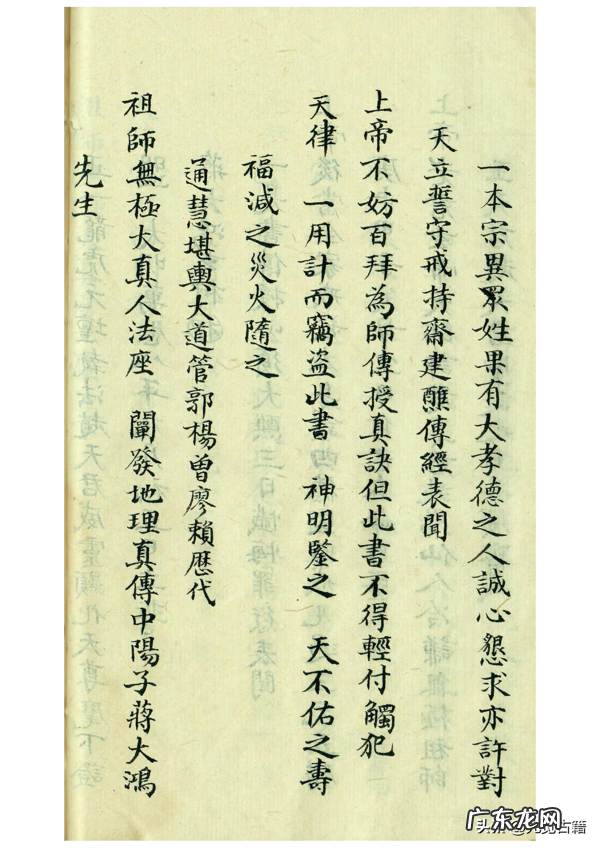 一本宗異眾姓果有大孝德之人誠心懇求亦許對
天立誓守戒持齋建醮傳經表聞
上帝不妨百拜為師傳授真訣但此書不得輕付觸犯
天律 一用計而竊盜此書 神明鑒之 天不佑之壽
福減之災火隨之
通慧堪輿大道管郭楊曾廖賴歷代
祖師無極大真人法座 闡發地理真傳中陽子蔣大鴻
先生
广东龙网